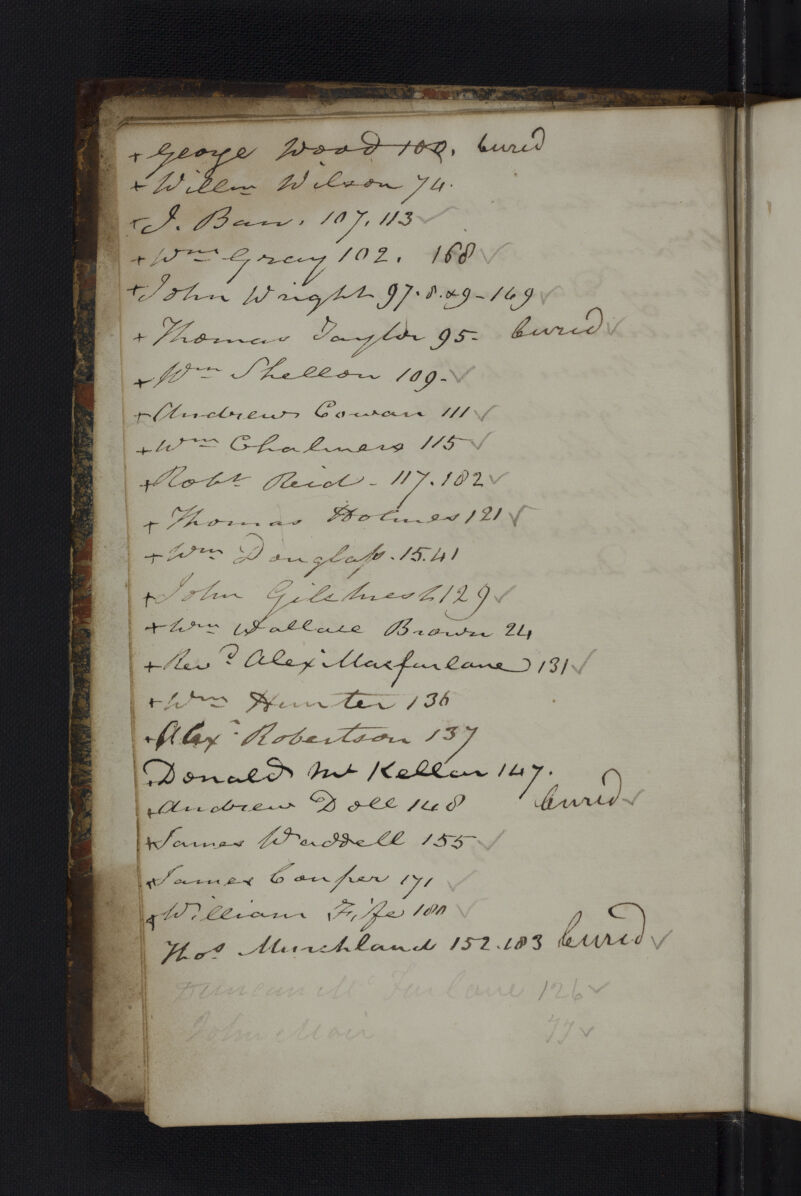 + George Wood 100. cured
+ Willm Wilson 74.
+ J. Barr. 107. 113 ✓
+ Wm Gray 102. 168 ✓
+ John Wright 97. 8. & 9 - 149
+ Thomas Taylor 95 - cured ✓
+ Wm Shellon 109 - ✓
+ Andrew Cowan 111 ✓
+ Wm Chalmers 115 ✓
+ Robt Reid - 117. 182 ✓
+ Thomas Holmes 121 ✓
+ Wm Douglass. 15. 41
+ John Gilchrest 129 ✓
+ Wm Wallace Brown 24
+ Revd Alexr Macfarlane 131 ✓
+ Wm Hunter 136
+ Alexr Robertson 137
+ Donald Mc Kellar 147.
+ Andrew Doll 148 cured ✓
+ James Waddell 155 ✓
+ James Couper 171 ✓
+ William Fife 180 ✓
Thos Murchland 152. 183 cured ✓
Duncan Mc Farlane 126 ✓
John Moir 77 ✓